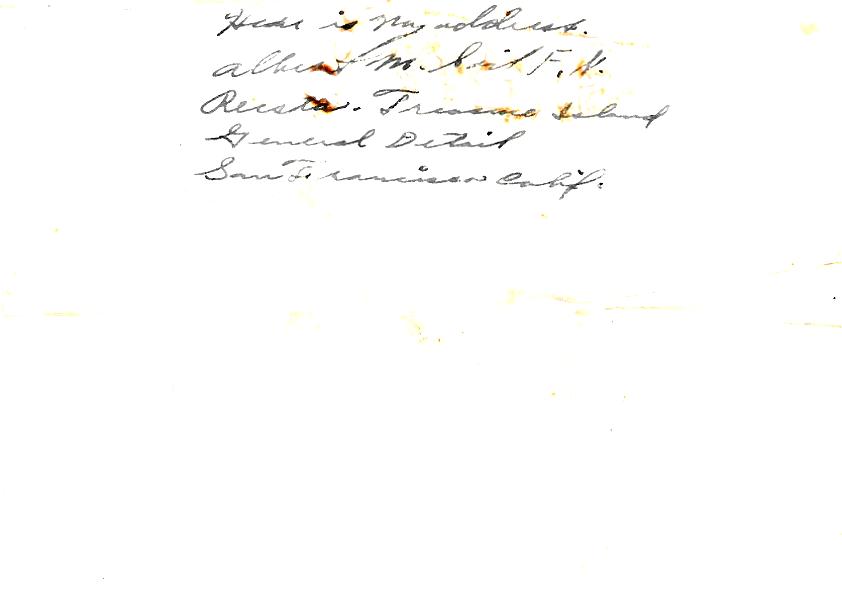 Here is my address.
Albert M. F. N.
Recsta. Treasure Island
General Detail
San Francisco Calif.